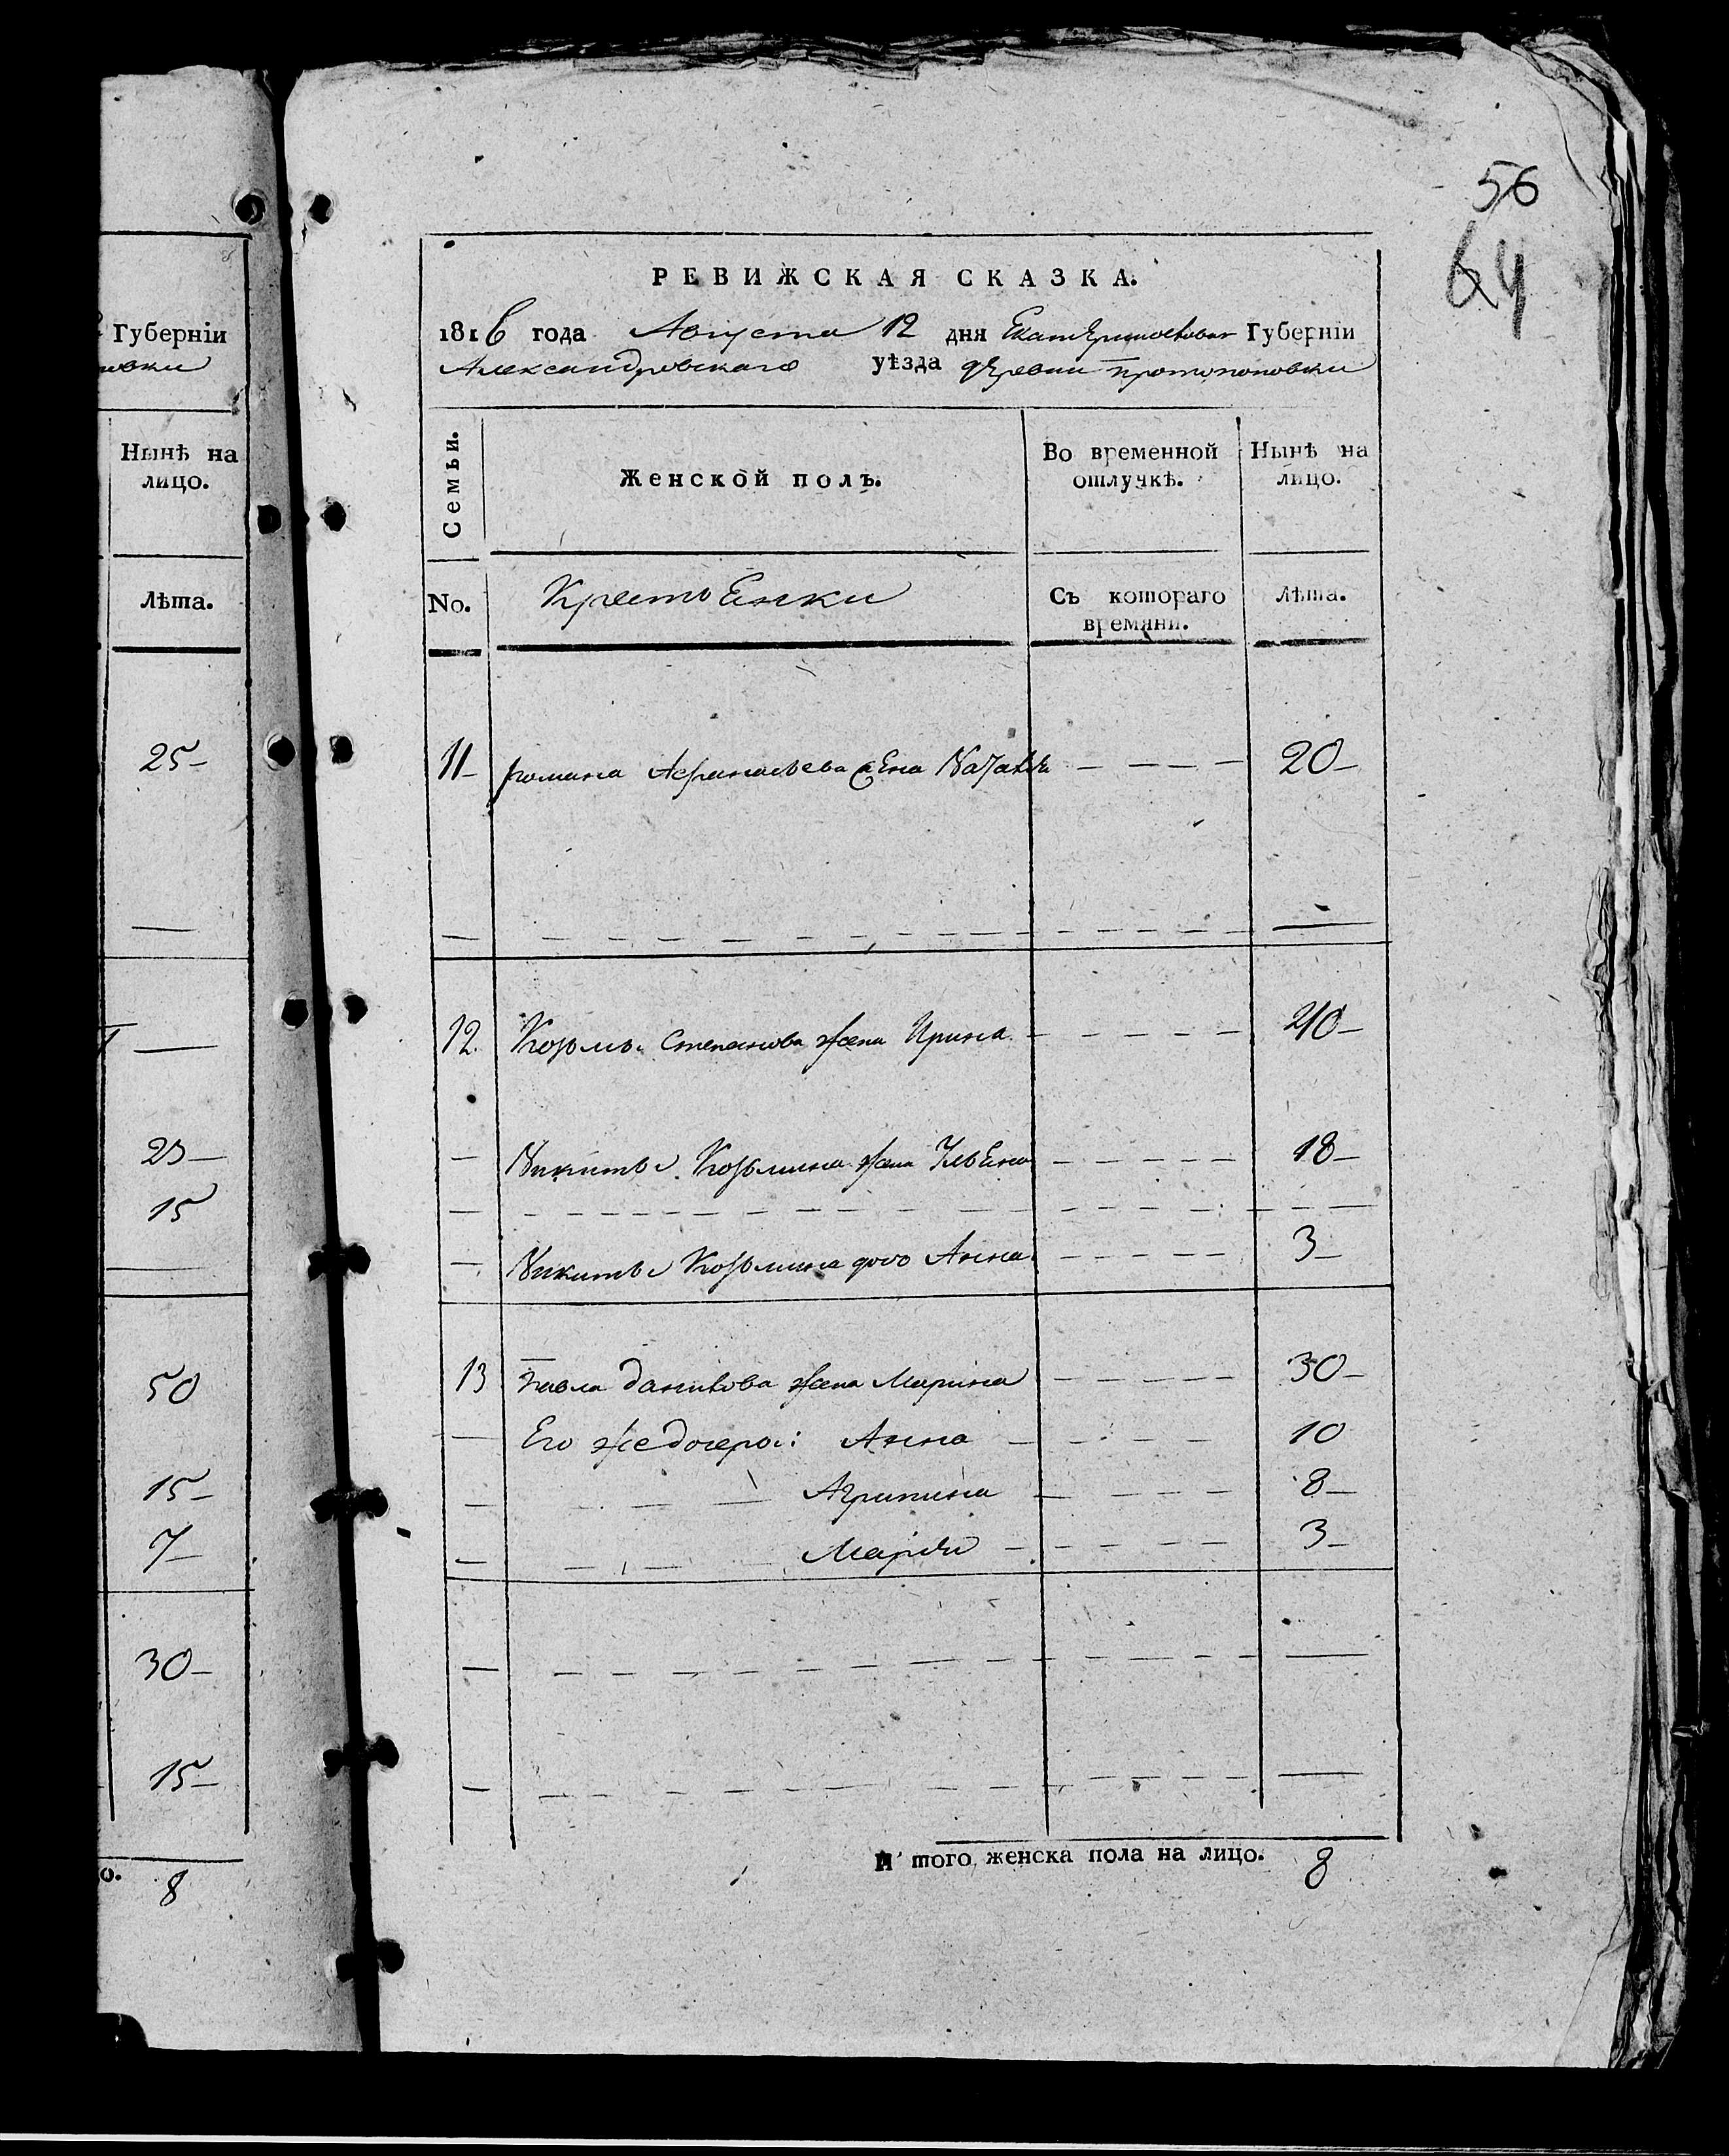 Губернїи
овки
Нынѣ на
лицо.
Лѣта.
25
23
15
50
15
7
30
15
о. 8
56
64
РЕВИЖСКАЯ СКАЗКА.
1816 года Августа 12 дня Екатеринославск Губернїи
Александровскаго уѣзда деревни Протопоповки
Семьи.
Женской полъ.
Во временной
отлучкѣ.
Нынѣ на
лицо.
No.
Крестьенки
Съ котораго
времяни.
Лѣта.
11 романа Афанасьева жена 20
12. Козьмы Степанова жена Ирина 40
Никиты Козьмина жена Ульена 18
Никиты Козьмина дочь Анна 3
13 Павла Данилова жена Марина 30
Его же дочеры: Анна 10
Агрипина 8
Марїя 3
И того женска пола на лицо. 8